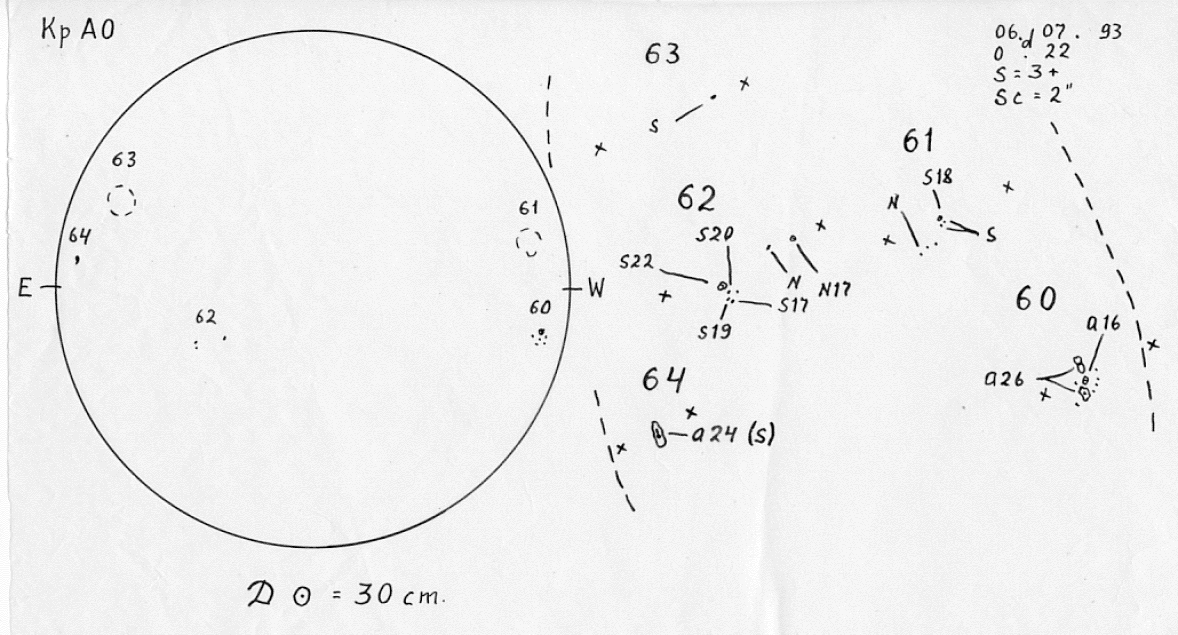 Кр АО
06.d 07. 93
0 . 22
S = 3 +
Sc = 2"
63
S
61
S18
N
S
62
S20
S22
N
N17
S17
S19
60
a16
a26
64
a24 (S)
63
64
61
E
W
62
60
D ⊙ = 30 cm.